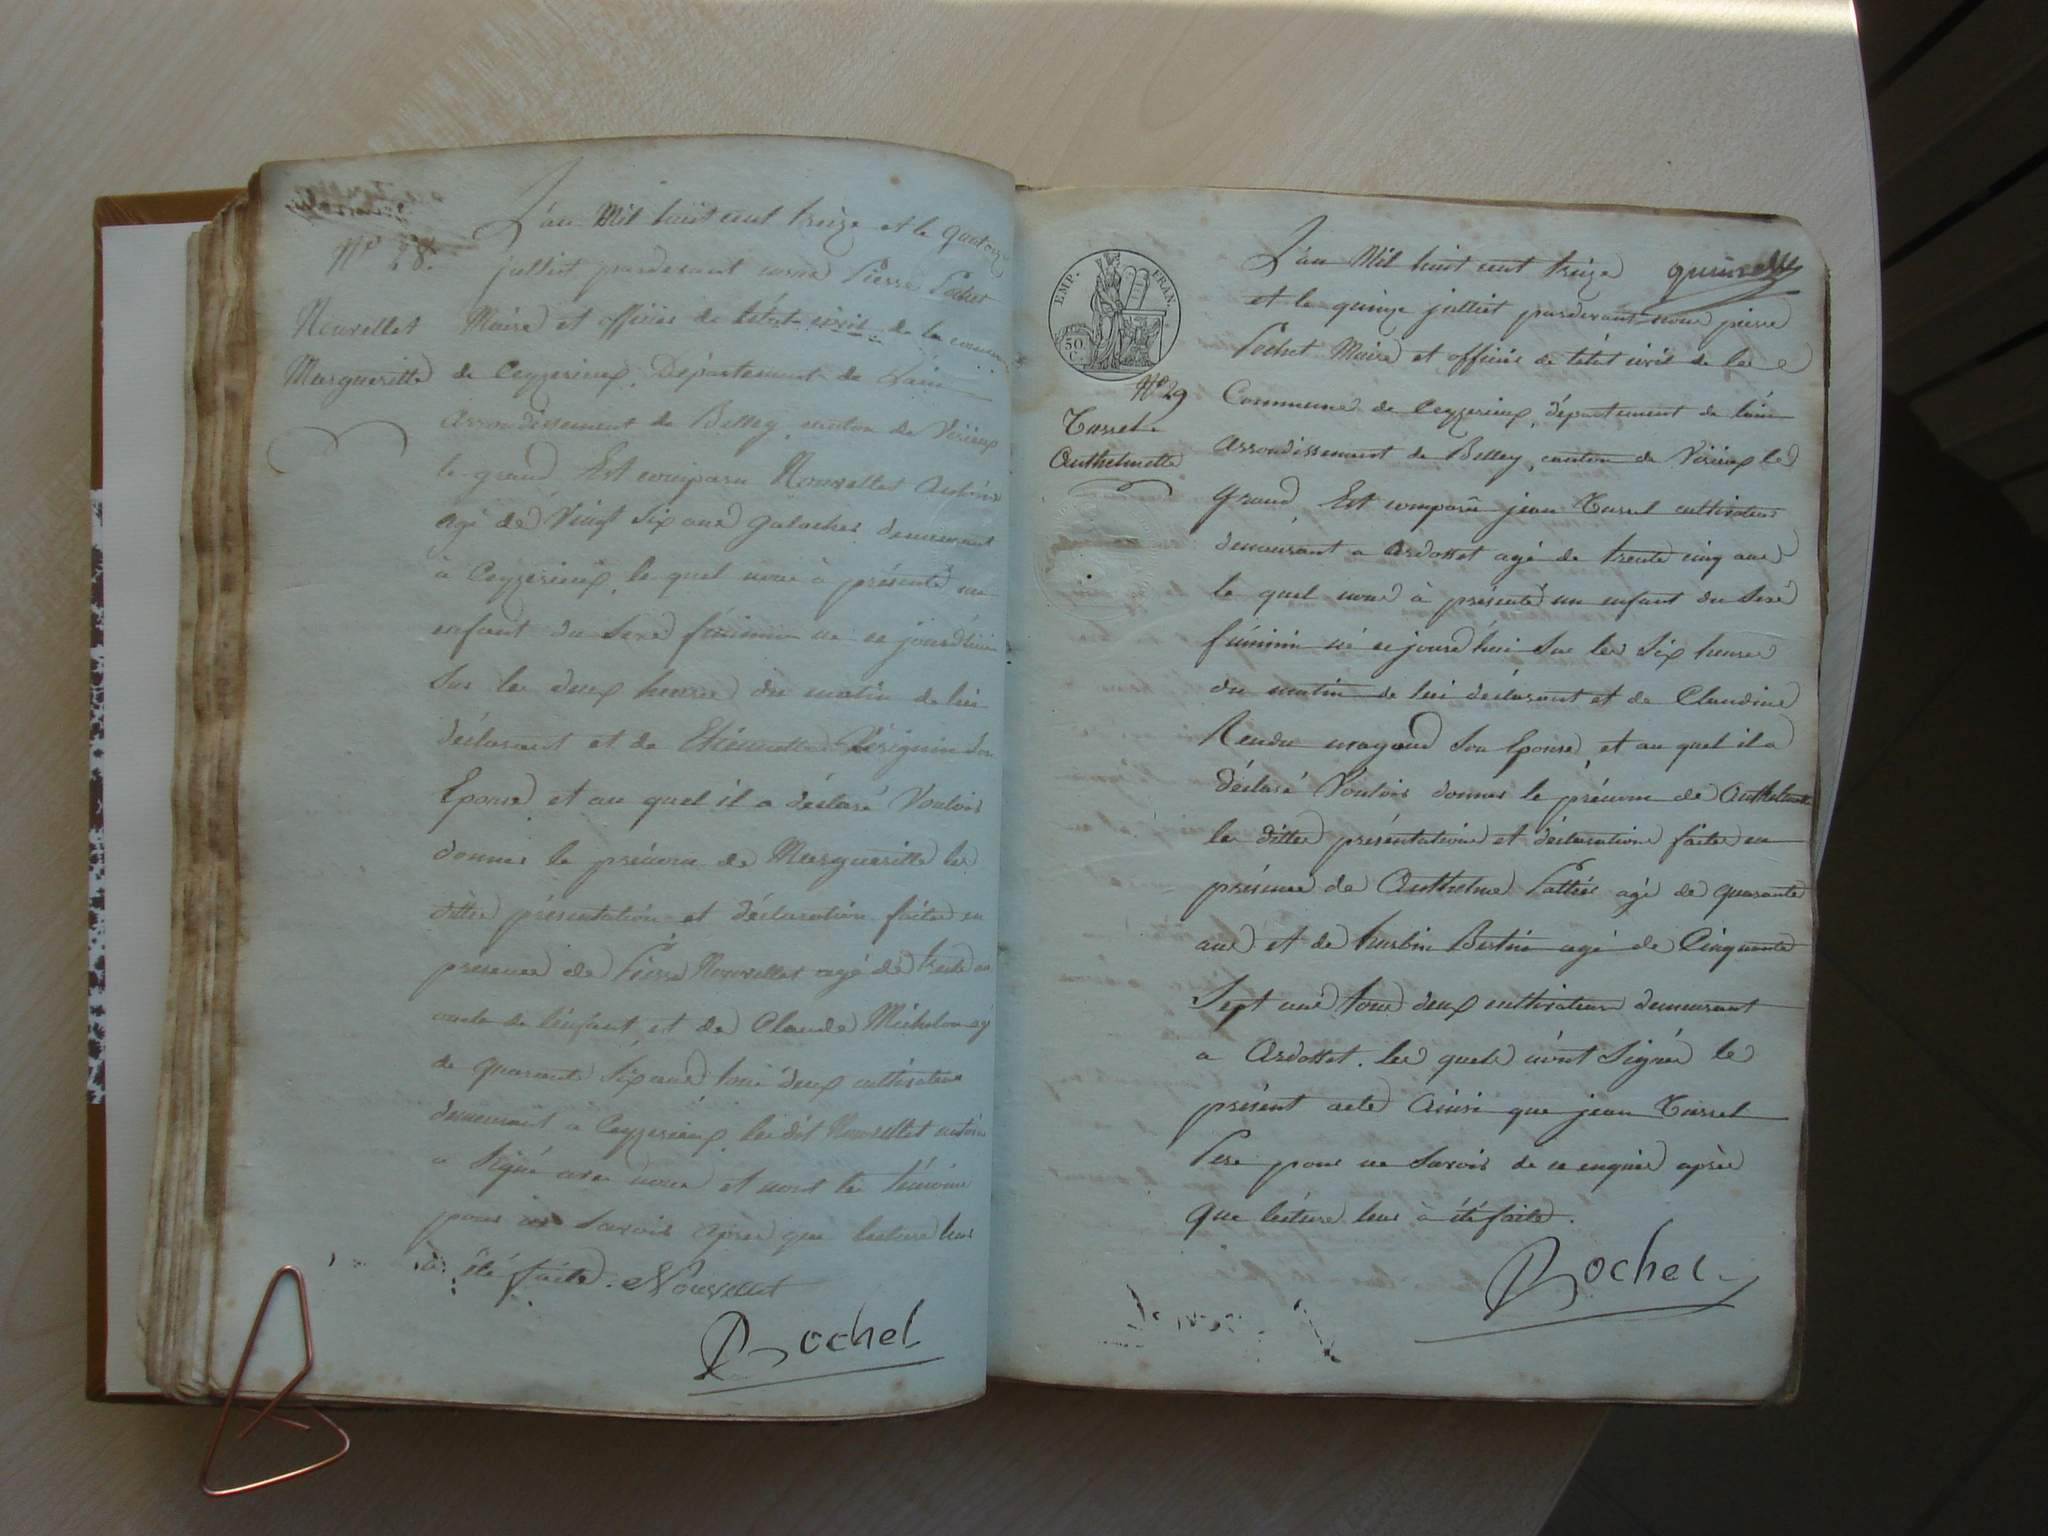 N° 28.
Nouvellet
Margueritte
L'an Mil huit cent treize et le quatorze
julliet pardevant nous Pierre Pochet
Maire et officier de l'état civil de la commune
de Ceyzerieux, Département de Lain
arrondissement de Belley, canton de Virieux
le grand Est comparu Nouvellet Antoine
agé de Vingt Six ans galocher demeurant
à Ceyzerieux, le quel nous à présenté un
enfant du Sexe féminin né ce jourd'hui
Sur les deux heures du matin de lui
déclarant et de Etiennette son
Epouse et au quel il a déclaré Vouloir
donner le prénom de Margueritte les
dittes présentation et déclaration faites en
présence de Pierre Nouvellet agé de trente ans
oncle de l'enfant, et de Claude Michelon agé
de quarante Six ans tous deux cultivateurs
demeurant a Ceyzerieux le dit Nouvellet antoine
a Signé avec nous et non les témoins
pour ne Savoir après que lecture leur
à été faite. Nouvellet
Pochet
EMP. FRAN.
50. C.
N° 29
Turrel
Anthelmette
L'an Mil huit cent treize
et le quinze julliet pardevant nous pierre
Pochet Maire et officier de l'état civil de la
Commune de Ceyzerieux, département de lain
arrondissement de Belley, canton de Virieux le
grand Est comparu jean Turrel cultivateur
demeurant a Ardosset agé de trente cinq ans
le quel nous à présenté un enfant du Sexe
féminin né ce jourd'hui Sur les Six heures
du matin de lui déclarant et de Claudine
Rendu Son Epouse, et au quel il a
déclaré Vouloir donner le prénom de Anthelmette
les dittes présentation et déclaration faites en
présence de Anthelme Pattier agé de quarante
ans et de hurbin Bertin agé de Cinquante
Sept ans tous deux cultivateurs demeurant
a Ardosset. les quels n'ont Signés le
présent acte Ainsi que jean Turrel
Pere pour ne Savoir de ce enquis après
que lécture leur à été faite.
Pochet